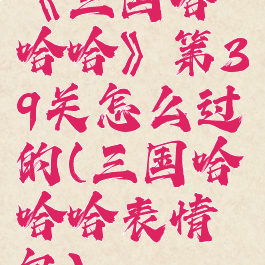 《三国哈
哈哈》第3
9关怎么过
的(三国哈
哈哈表情
包)